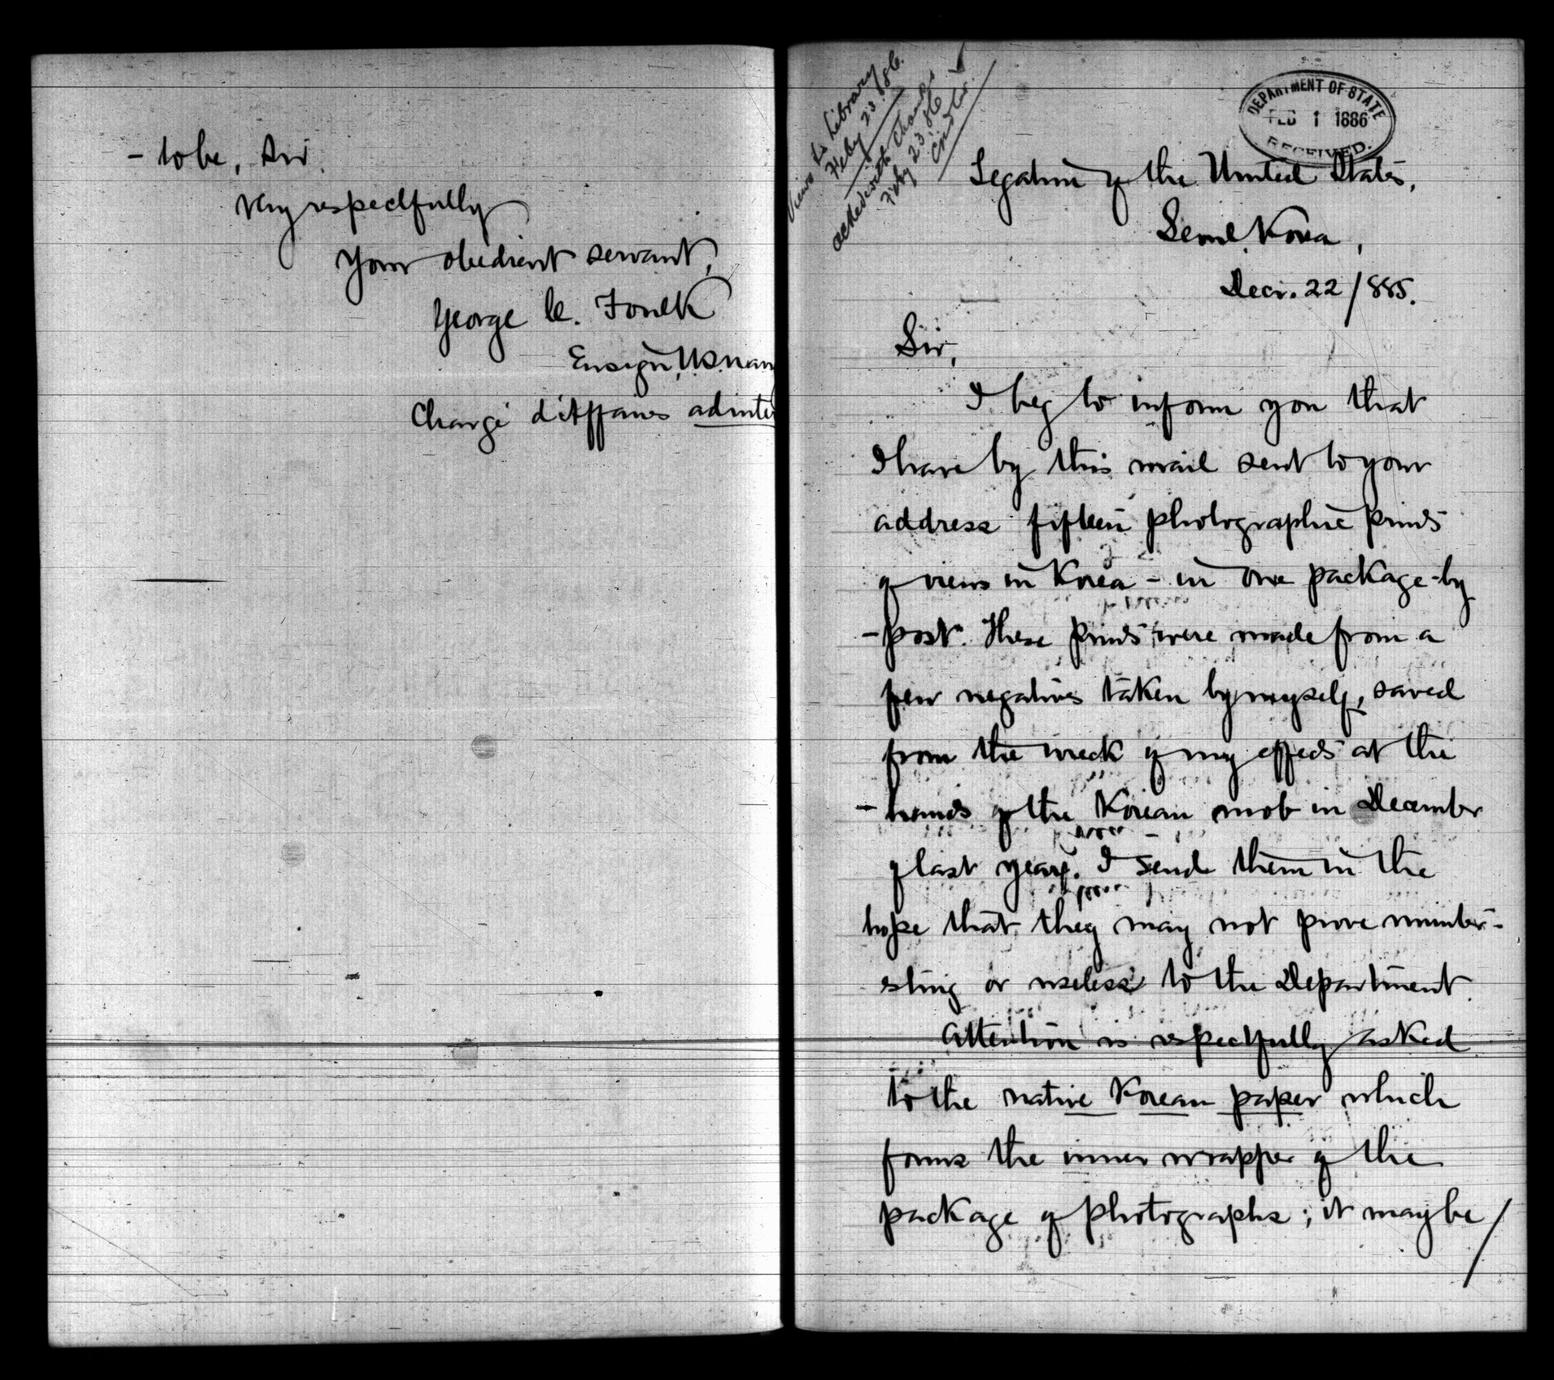 - to be, Sir
Very respectfully
Your obedient servant,
George C. Foulk
Ensign, U.S. Navy
Chargé d'affaires ad inte
Views to Library
Feby 23 '86.
acked with change
Feby 23 86
DEPARTMENT OF STATE
FEB 1 1886
RECEIVED.
Legation of the United States,
Seoul, Korea,
Decr. 22/885.
Sir,
I beg to inform you that
I have by this mail sent to your
address fifteen photographic prints
of views in Korea - in one package - by
- post. These prints were made from a
few negatives taken by myself, saved
from the wreck of my effects at the
- hands of the Korean mob in December
of last year. I send them in the
hope that they may not prove uninter-
esting or useless to the Department.
Attention is respectfully asked
to the native Korean paper which
forms the inner wrapper of the
package of photographs; it may be/